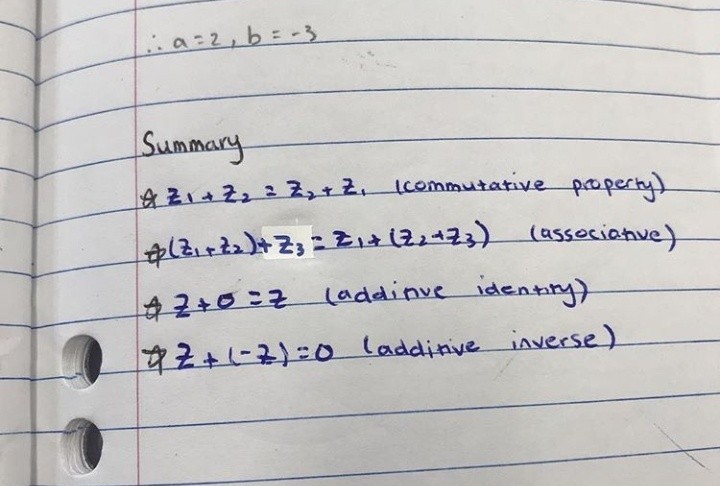 ∴ a=2, b=-3
Summary
☆ z₁ + z₂ = z₂ + z₁ (commutative property)
☆ (z₁+z₂)+z₃ = z₁+(z₂+z₃) (associative)
☆ z+0=z (additive identity)
☆ z+(-z)=0 (additive inverse)